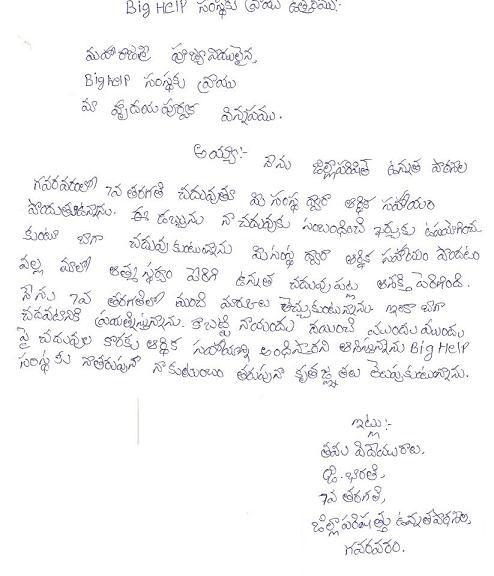 Big HelP సంస్థకు వ్రాయు ఉత్తరము:-
మహారాజశ్రీ పూజ్యనీయులైన,
Big HelP సంస్థకు వ్రాయు
మా హృదయపూర్వక విన్నపము.
అయ్యా:- నేను జిల్లాపరిషత్ ఉన్నత పాఠశాల
గవరవరంలో 7వ తరగతి చదువుతూ మీ సంస్థ ద్వారా ఆర్థిక సహాయం
పొందుతున్నాను. ఈ డబ్బును నా చదువుకు సంబంధించి ఖర్చుకు ఉపయోగించు
కుంటూ బాగా చదువుకుంటున్నాను మీసంస్థ ద్వారా ఆర్థిక సహాయం పొందటం
వల్ల మాలో ఆత్మస్థైర్యం పెరిగి ఉన్నత చదువులపట్ల ఆసక్తి పెరిగింది.
నేను 7వ తరగతిలో మంచి మార్కులు తెచ్చుకుంటున్నాను. ఇంకా బాగా
చదవటానికి ప్రయత్నిస్తున్నాను. కాబట్టి నాయందు దయఉంచి ముందుముందు
పై చదువుల కొరకు ఆర్థిక సహాయాన్ని అందిస్తారని ఆశిస్తున్నాను Big HelP
సంస్థకు నాతరుపునా నా కుటుంబం తరుపునా కృతజ్ఞతలు తెలుపుకుంటున్నాను.
ఇట్లు:-
తమ విధేయురాలు,
డి. భారతి,
7వ తరగతి,
జిల్లాపరిషత్తు ఉన్నతపాఠశాల,
గవరవరం.